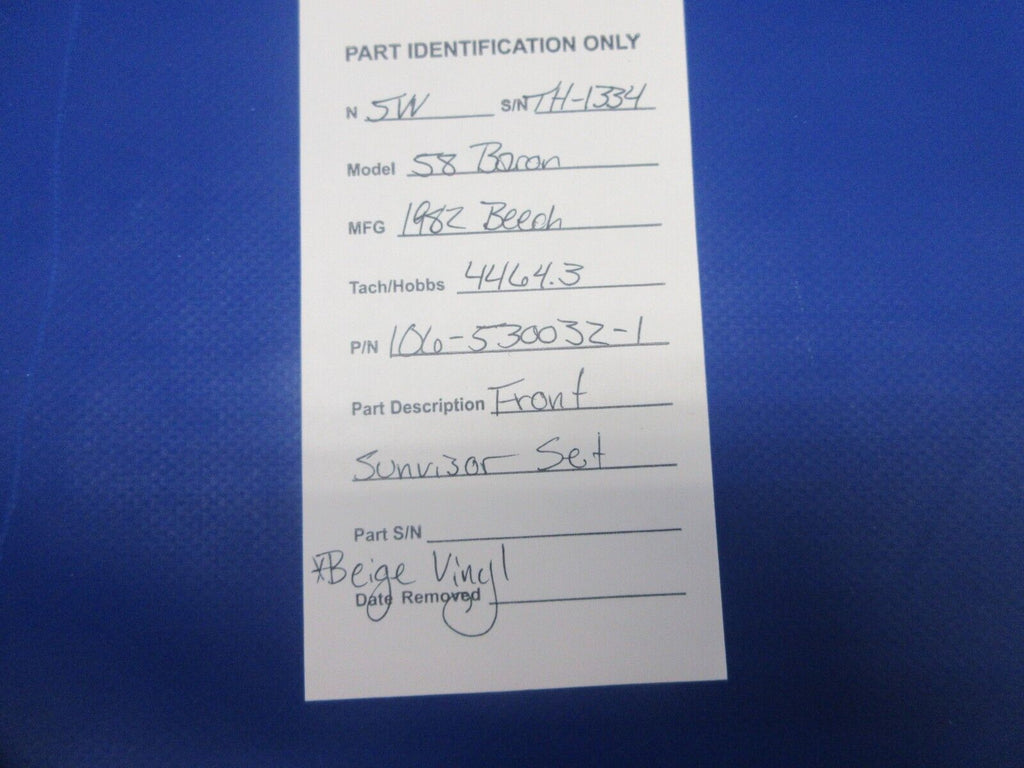 PART IDENTIFICATION ONLY
N 5W S/N TH-1334
Model 58 Baron
MFG 1982 Beech
Tach/Hobbs 4464.3
P/N 106-530032-1
Part Description Front
Sunvisor Set
Part S/N
*Beige Vinyl
Date Removed